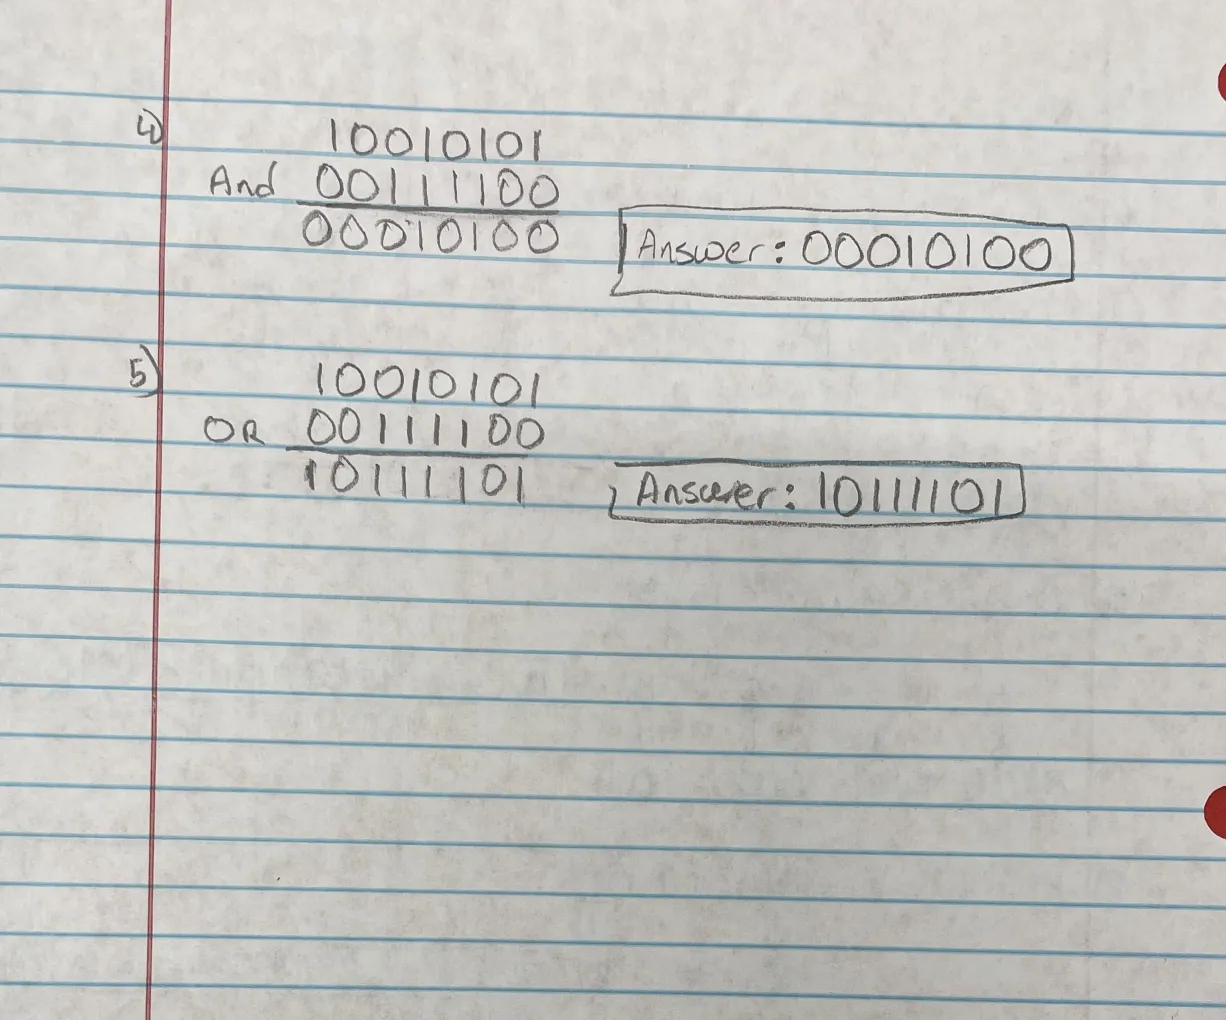 4) 10010101
And 00111100
00010100
Answer: 00010100
5) 10010101
OR 00111100
10111101
Answer: 10111101